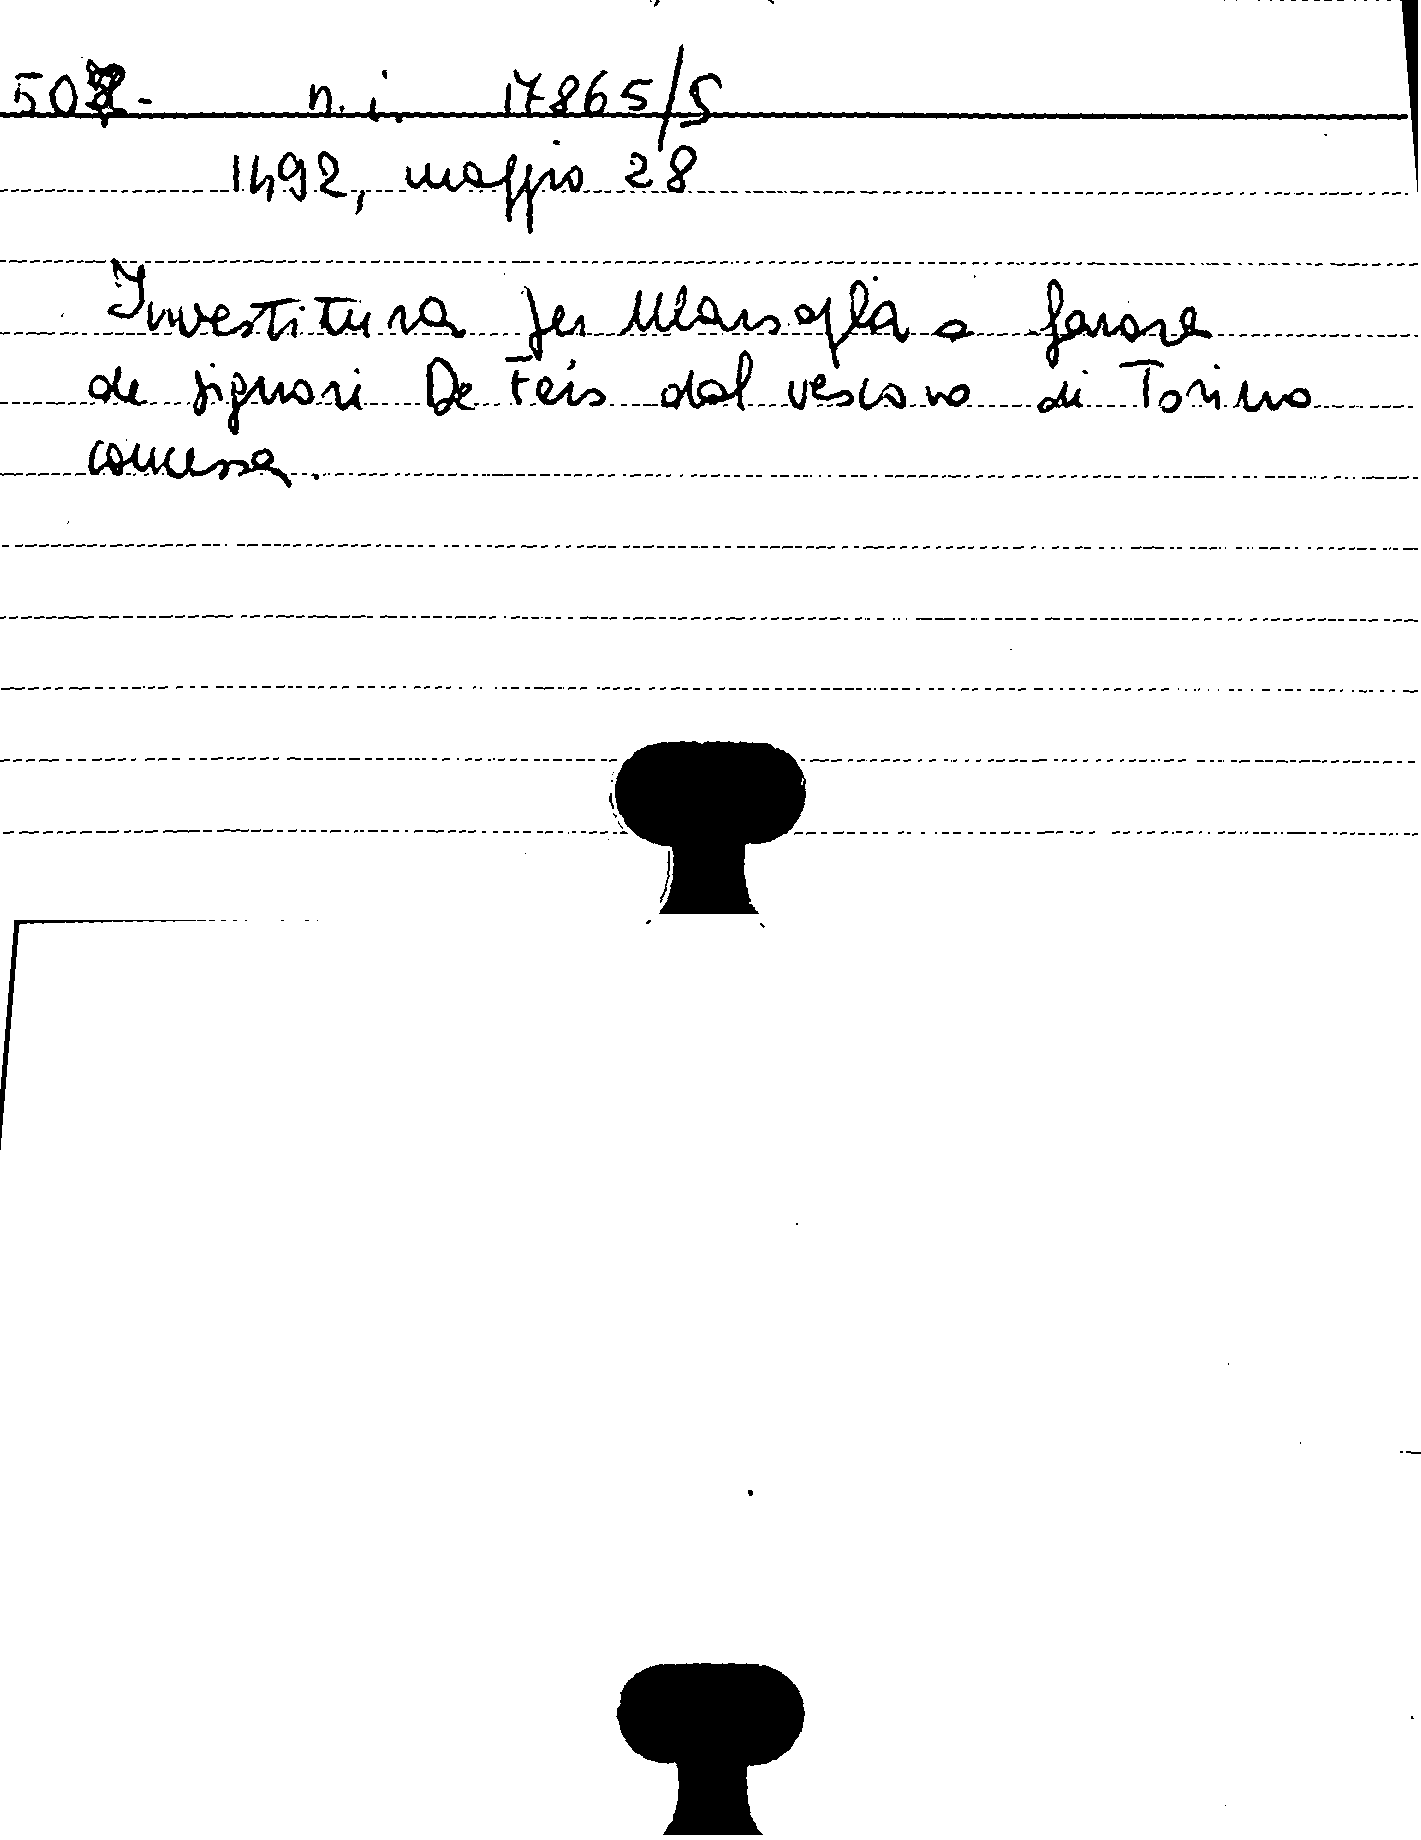 50 - n. i. 17865/5
1492, maggio 28
Investitura per Marsaglia a favore
de signori De Feis dal vescovo di Torino
concessa.